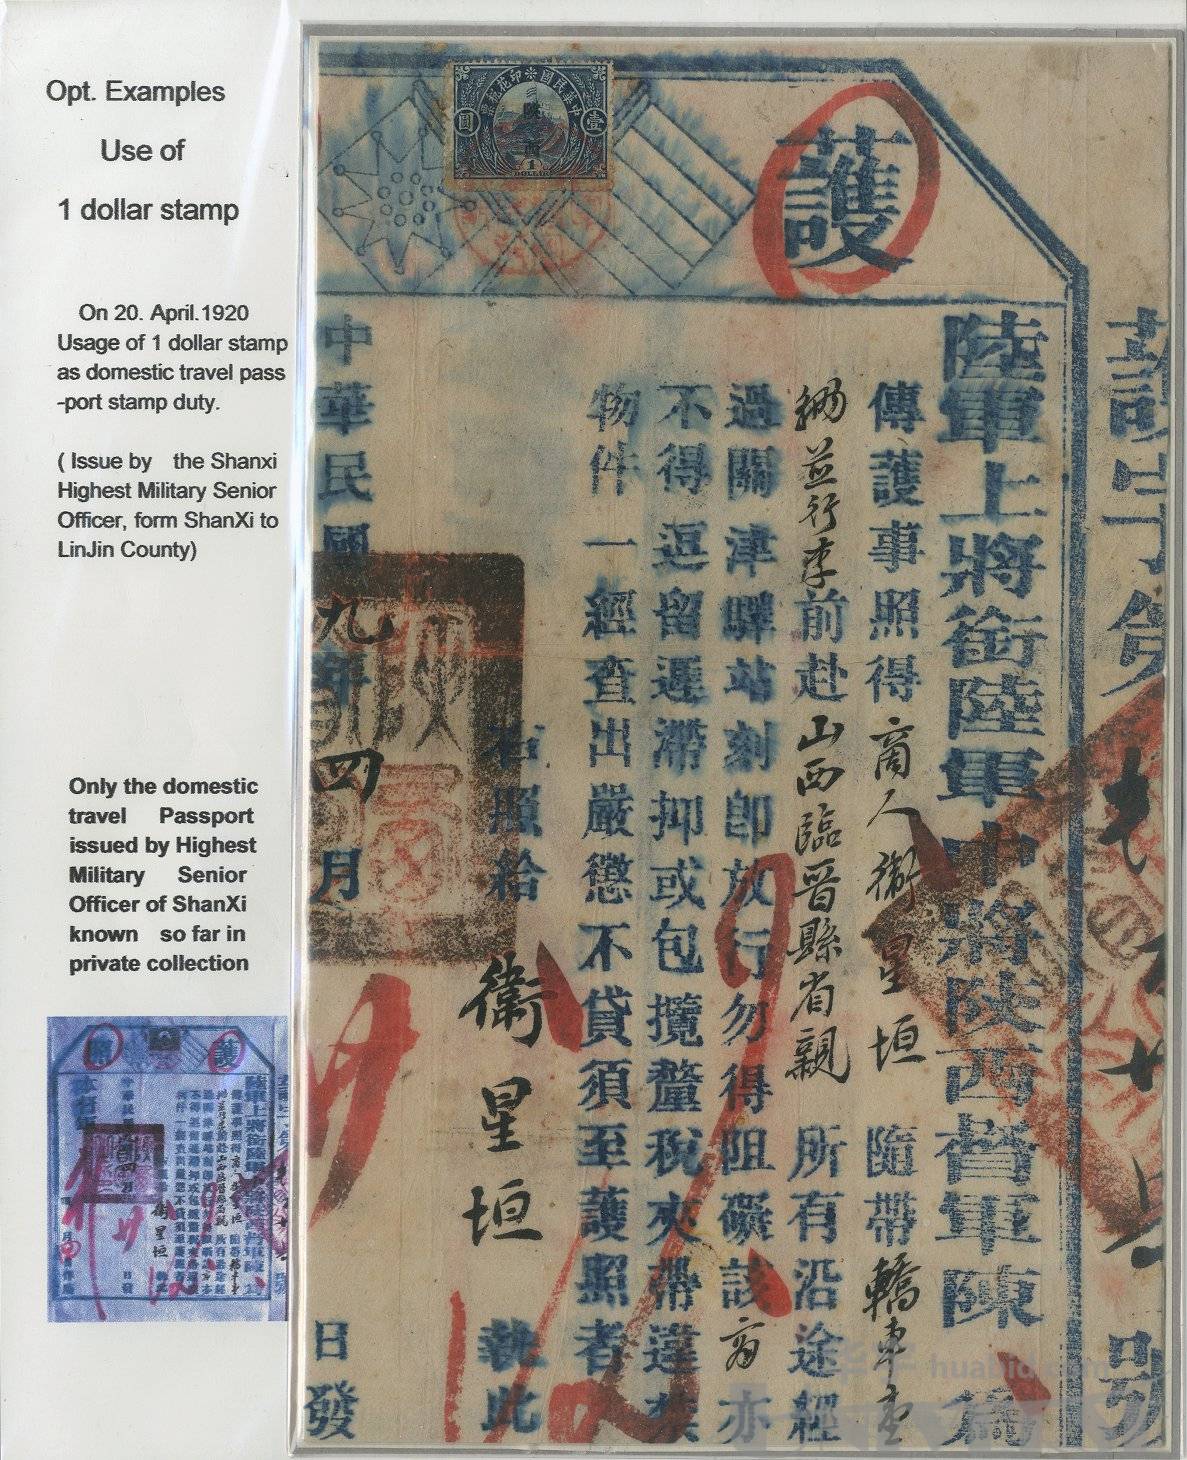 Opt. Examples
Use of
1 dollar stamp
On 20. April.1920
Usage of 1 dollar stamp
as domestic travel pass
-port stamp duty.
( Issue by the Shanxi
Highest Military Senior
Officer, form ShanXi to
LinJin County)
Only the domestic
travel Passport
issued by Highest
Military Senior
Officer of ShanXi
known so far in
private collection
中華民國印花稅票
壹
圓
陝西
1
DOLLAR
護
護字第
號
陸軍上將銜陸軍中將陝西督軍陳 為
傳護事照得商人衛星垣 隨帶轎車壹
輛並行李前赴山西臨晉縣省親 所有沿途經
過關津驛站刻即放行勿得阻礙該商亦
不得逗留遲滯抑或包攬釐稅夾帶違禁
物件一經查出嚴懲不貸須至護照者
右照給 衛星垣 執此
中華民國九年四月 日發
华宇 huabid.com